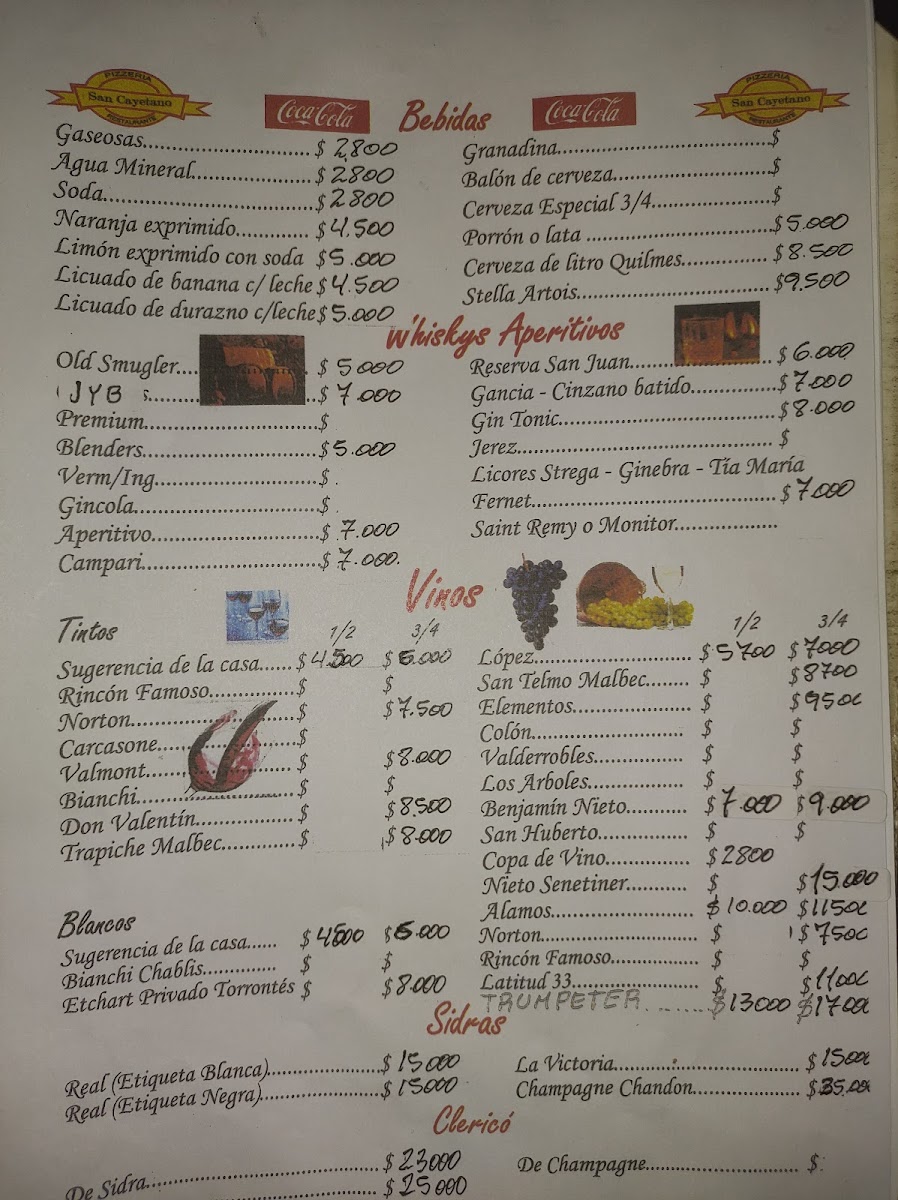 PIZZERIA
San Cayetano
RESTAURANTE
Coca-Cola
Bebidas
Coca-Cola
PIZZERIA
San Cayetano
RESTAURANTE
Gaseosas...............................$ 2,800
Agua Mineral......................$ 2800
Soda.......................................$ 2800
Naranja exprimido.............$ 4.500
Limón exprimido con soda $5.000
Licuado de banana c/ leche $ 4.500
Licuado de durazno c/leche $ 5.000
Granadina.......................................$
Balón de cerveza.............................$
Cerveza Especial 3/4......................$
Porrón o lata ..................................$ 5.000
Cerveza de litro Quilmes...............$ 8.500
Stella Artois...................................$9.500
Whiskys Aperitivos
Old Smugler.... $ 5000
JYB s.... ..$ 7.000
Premium................................$
Blenders................................$ 5.000
Verm/Ing..............................$
Gincola..................................$
Aperitivo...............................$ 7.000
Campari................................$ 7.000.
Reserva San Juan......................... $ 6.000
Gancia - Cinzano batido...............$ 7.000
Gin Tonic.......................................$ 8.000
Jerez............................................... $
Licores Strega - Ginebra - Tía María
Fernet.............................................$ 7.000
Saint Remy o Monitor..................
Vinos
Tintos 1/2 3/4
Sugerencia de la casa......$ 4.500 $ 6.000
Rincón Famoso...............$ $
Norton............................$ $ 7.500
Carcasone.......................$
Valmont.........................$ $ 8.000
Bianchi...........................$ $
Don Valentín..................$ $ 8.500
Trapiche Malbec.............$ $ 8.000
1/2 3/4
López............................$ 5700 $ 7000
San Telmo Malbec........ $ $ 8700
Elementos..................... $
Colón............................ $ $
Valderrobles................. $ $
Los Arboles.................. $ $
Benjamín Nieto............ $ 7.000 $ 9.000
San Huberto................. $ $
Copa de Vino................ $ 2800
Nieto Senetiner............ $ $ 15.000
Alamos......................... $ 10.000
Norton.......................... $
Rincón Famoso............. $ $
Latitud 33.................... $
TRUMPETER.......... $ 13000
Blancos
Sugerencia de la casa...... $ 4800 $ 6.000
Bianchi Chablis............. $ $
Etchart Privado Torrontés $ $ 8.000
Sidras
Real (Etiqueta Blanca).....................$ 15000
Real (Etiqueta Negra)......................$ 15000
La Victoria....................................
Champagne Chandon.....................
Clericó
De Sidra.........................................$ 23000
$ 25000
De Champagne............................. $